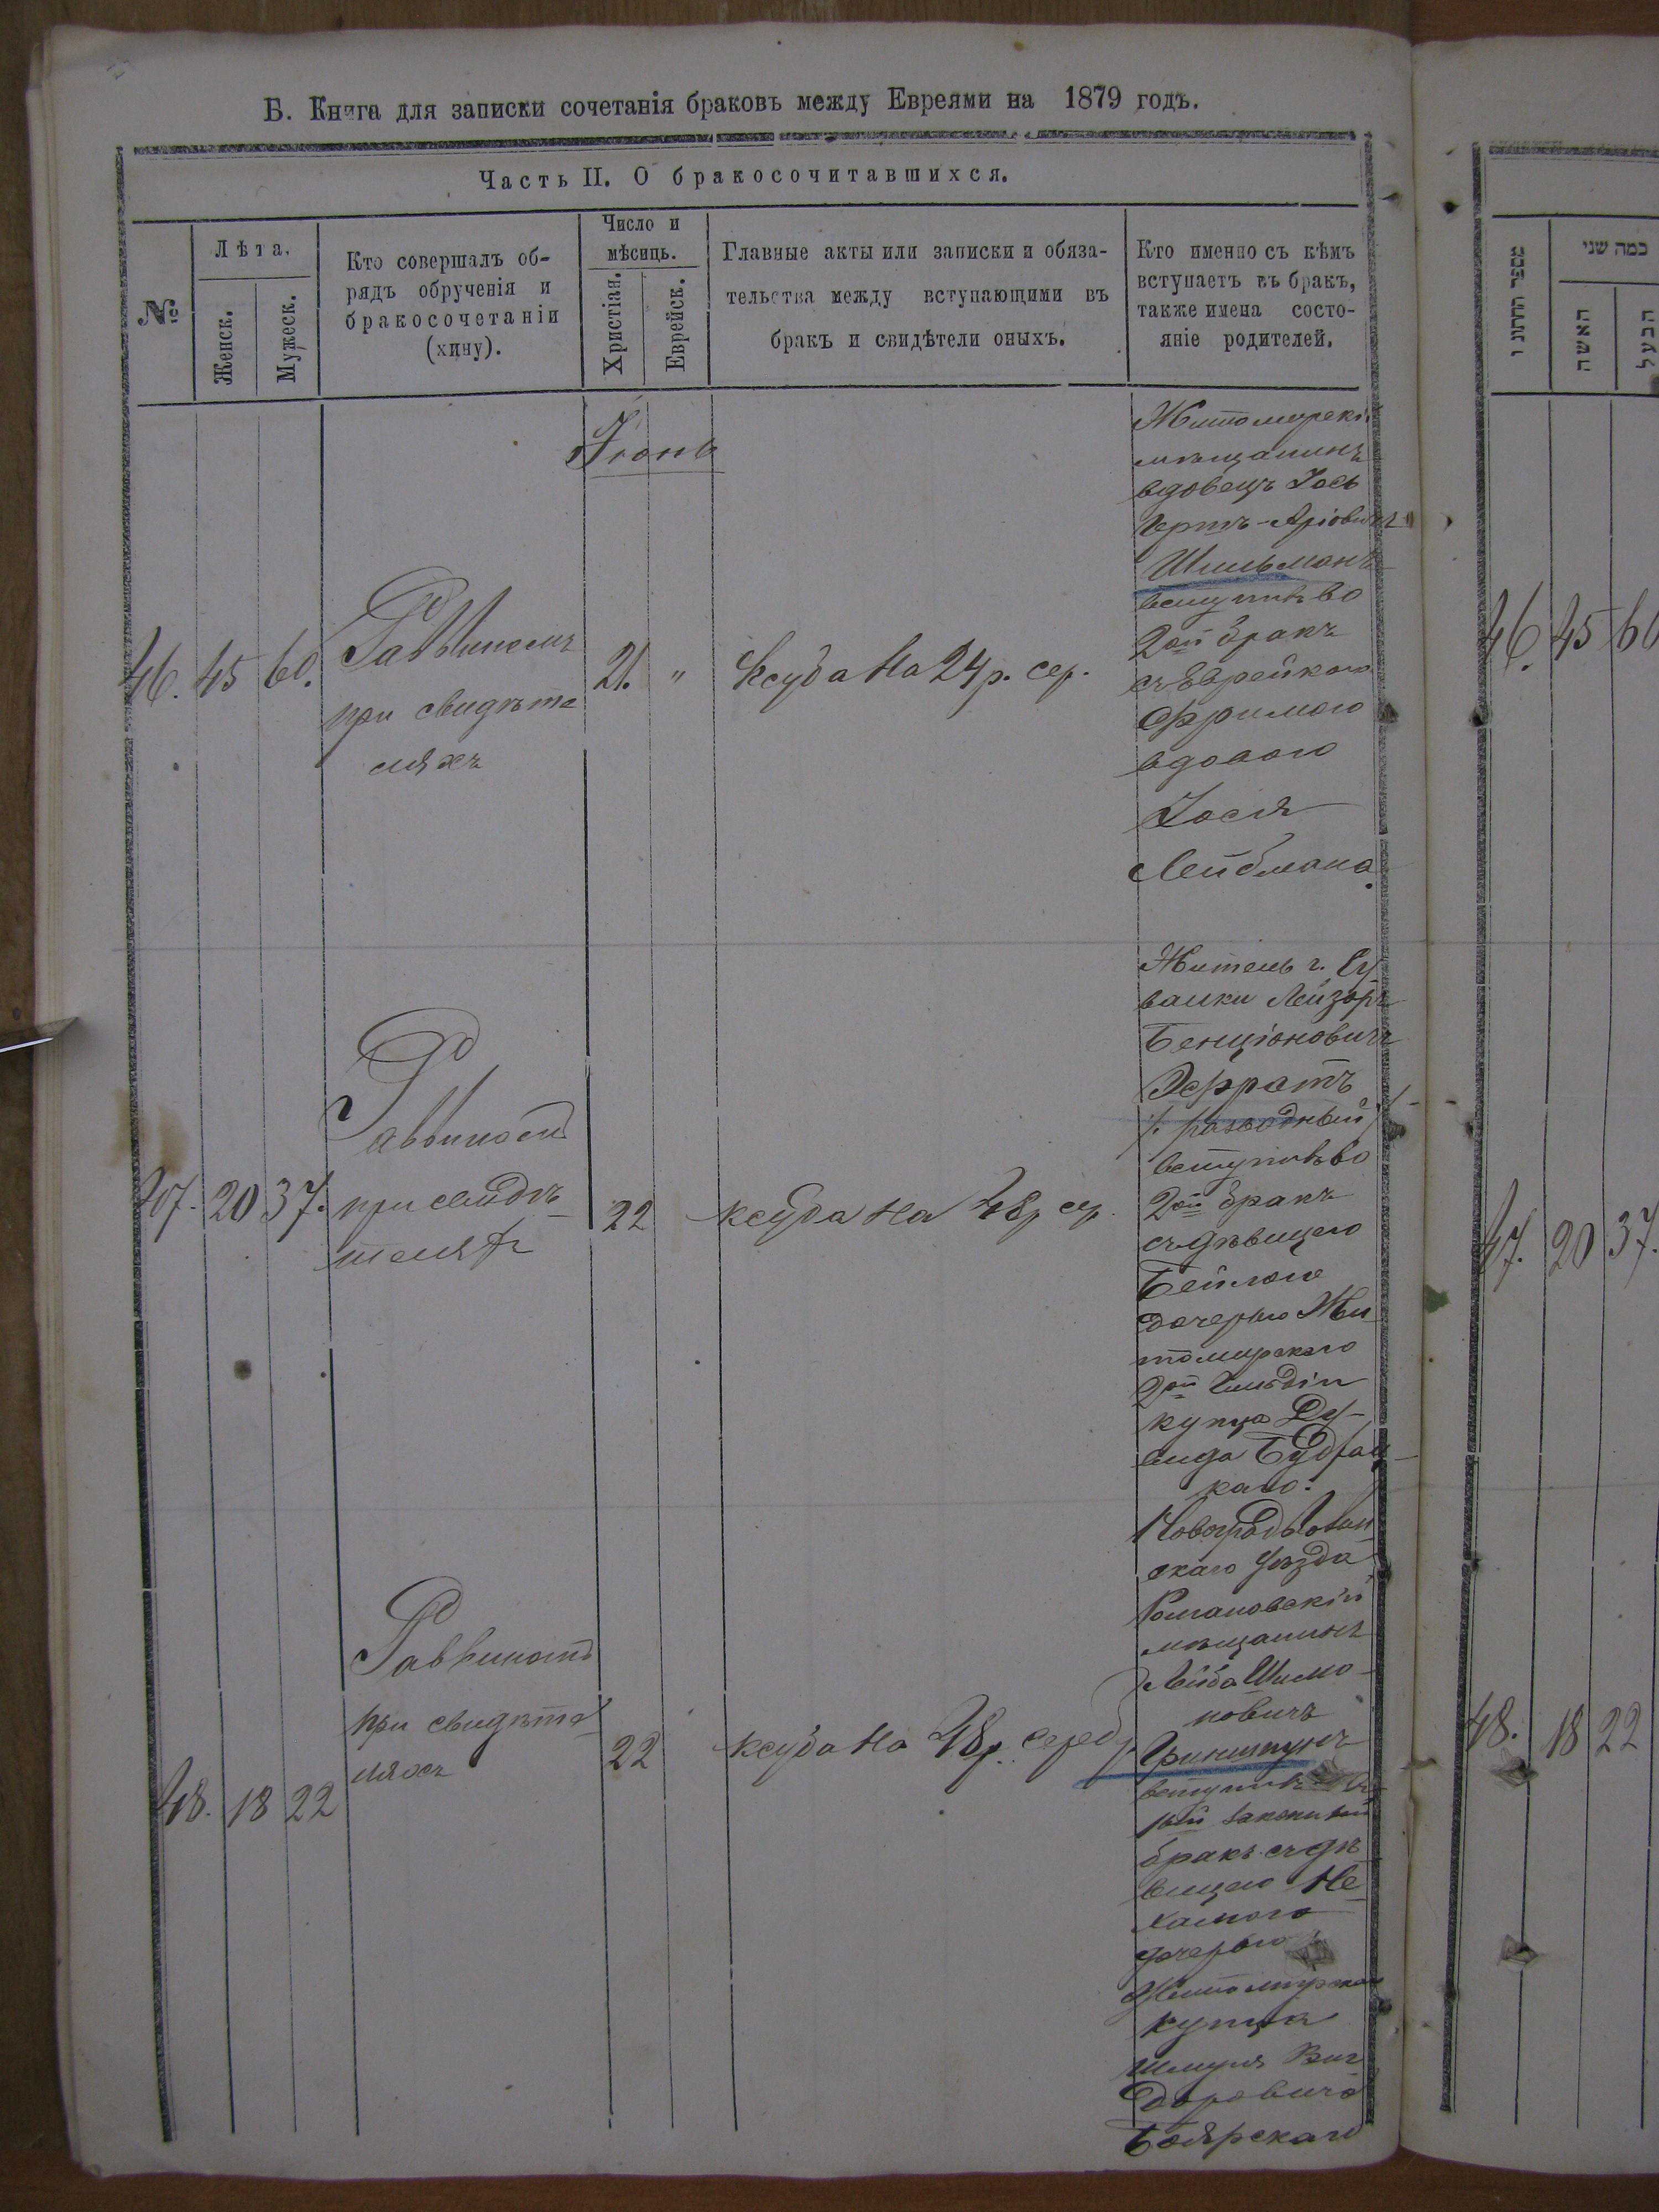 Б. Книга для записки сочетанія браковъ между Евреями на 1879 годъ.
Часть II. О бракосочитавшихся.
№
Лѣта.
Женск.
Мужеск.
Кто совершалъ об-
рядъ обрученія и
бракосочетаніи
(хипу).
Число и
мѣсяць.
Христіан.
Еврейск.
Главные акты или записки и обяза-
тельства между вступающими въ
бракъ и свидѣтели оныхъ.
Кто именно съ кѣмъ
вступаетъ въ бракъ,
также имена состо-
яніе родителей.
Іюнь
46. 45 60.
Раввиномъ
при свидѣте
ляхъ
21. "
Ксуба на 24 р. сер.
Житомирскій
мѣщанинъ
вдовецъ Іось
Герт-Аріовичъ
Шильманъ
вступилъ во
2ой бракъ
съ Еврейкою
вдовою
Лейбмана.
47. 20 37.
Раввиномъ
при свидѣ
теляхъ
22
ксуба на 48 р сер.
Житель г. Су
валки Лейзоръ
Бенціоновичъ
Эфратъ
/: разводный :/
вступилъ во
2ой бракъ
съ дѣвицею
Бейлою
дочерью Жи
томирскаго
2ой Гильдіи
купца Ду-
вида
каго.
48. 18 22
Раввиномъ
при свидѣте
ляхъ
22
ксуба на 48 р. сереб.
Новоградволын
скаго уѣзда
Романовскій
мѣщанинъ
Лейба Шимо
новичъ
Гриншпунъ
вступилъ въ
1ый законный
бракъ съ дѣ
вицею Не
хамою
дочерью
Житомирскаго
купца
Шмуля Виг
доровича
Боярскаго
כמה שני
האשה
הבעל
46. 45 60
47. 20 37.
48. 18 22